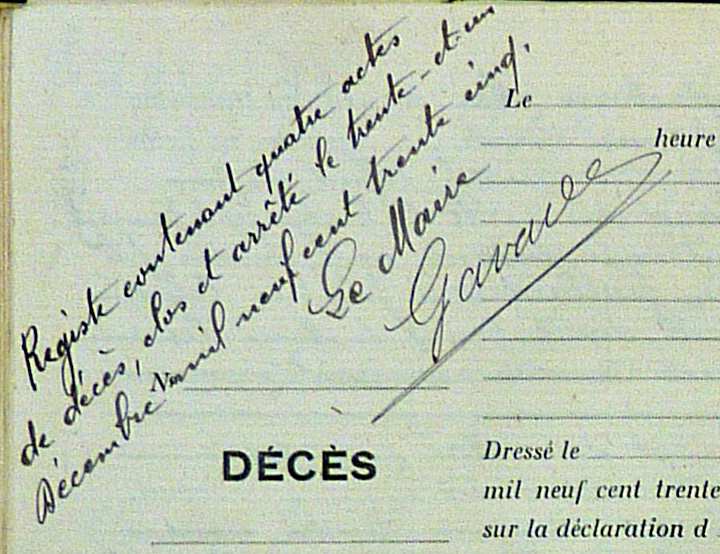 Registre contenant quatre actes
de décès, clos et arrêté le trente-et-un
Décembre mil neuf cent trente cinq.
Le Maire
N
DÉCÈS
Le
heure
Dressé le
mil neuf cent trente
sur la déclaration d